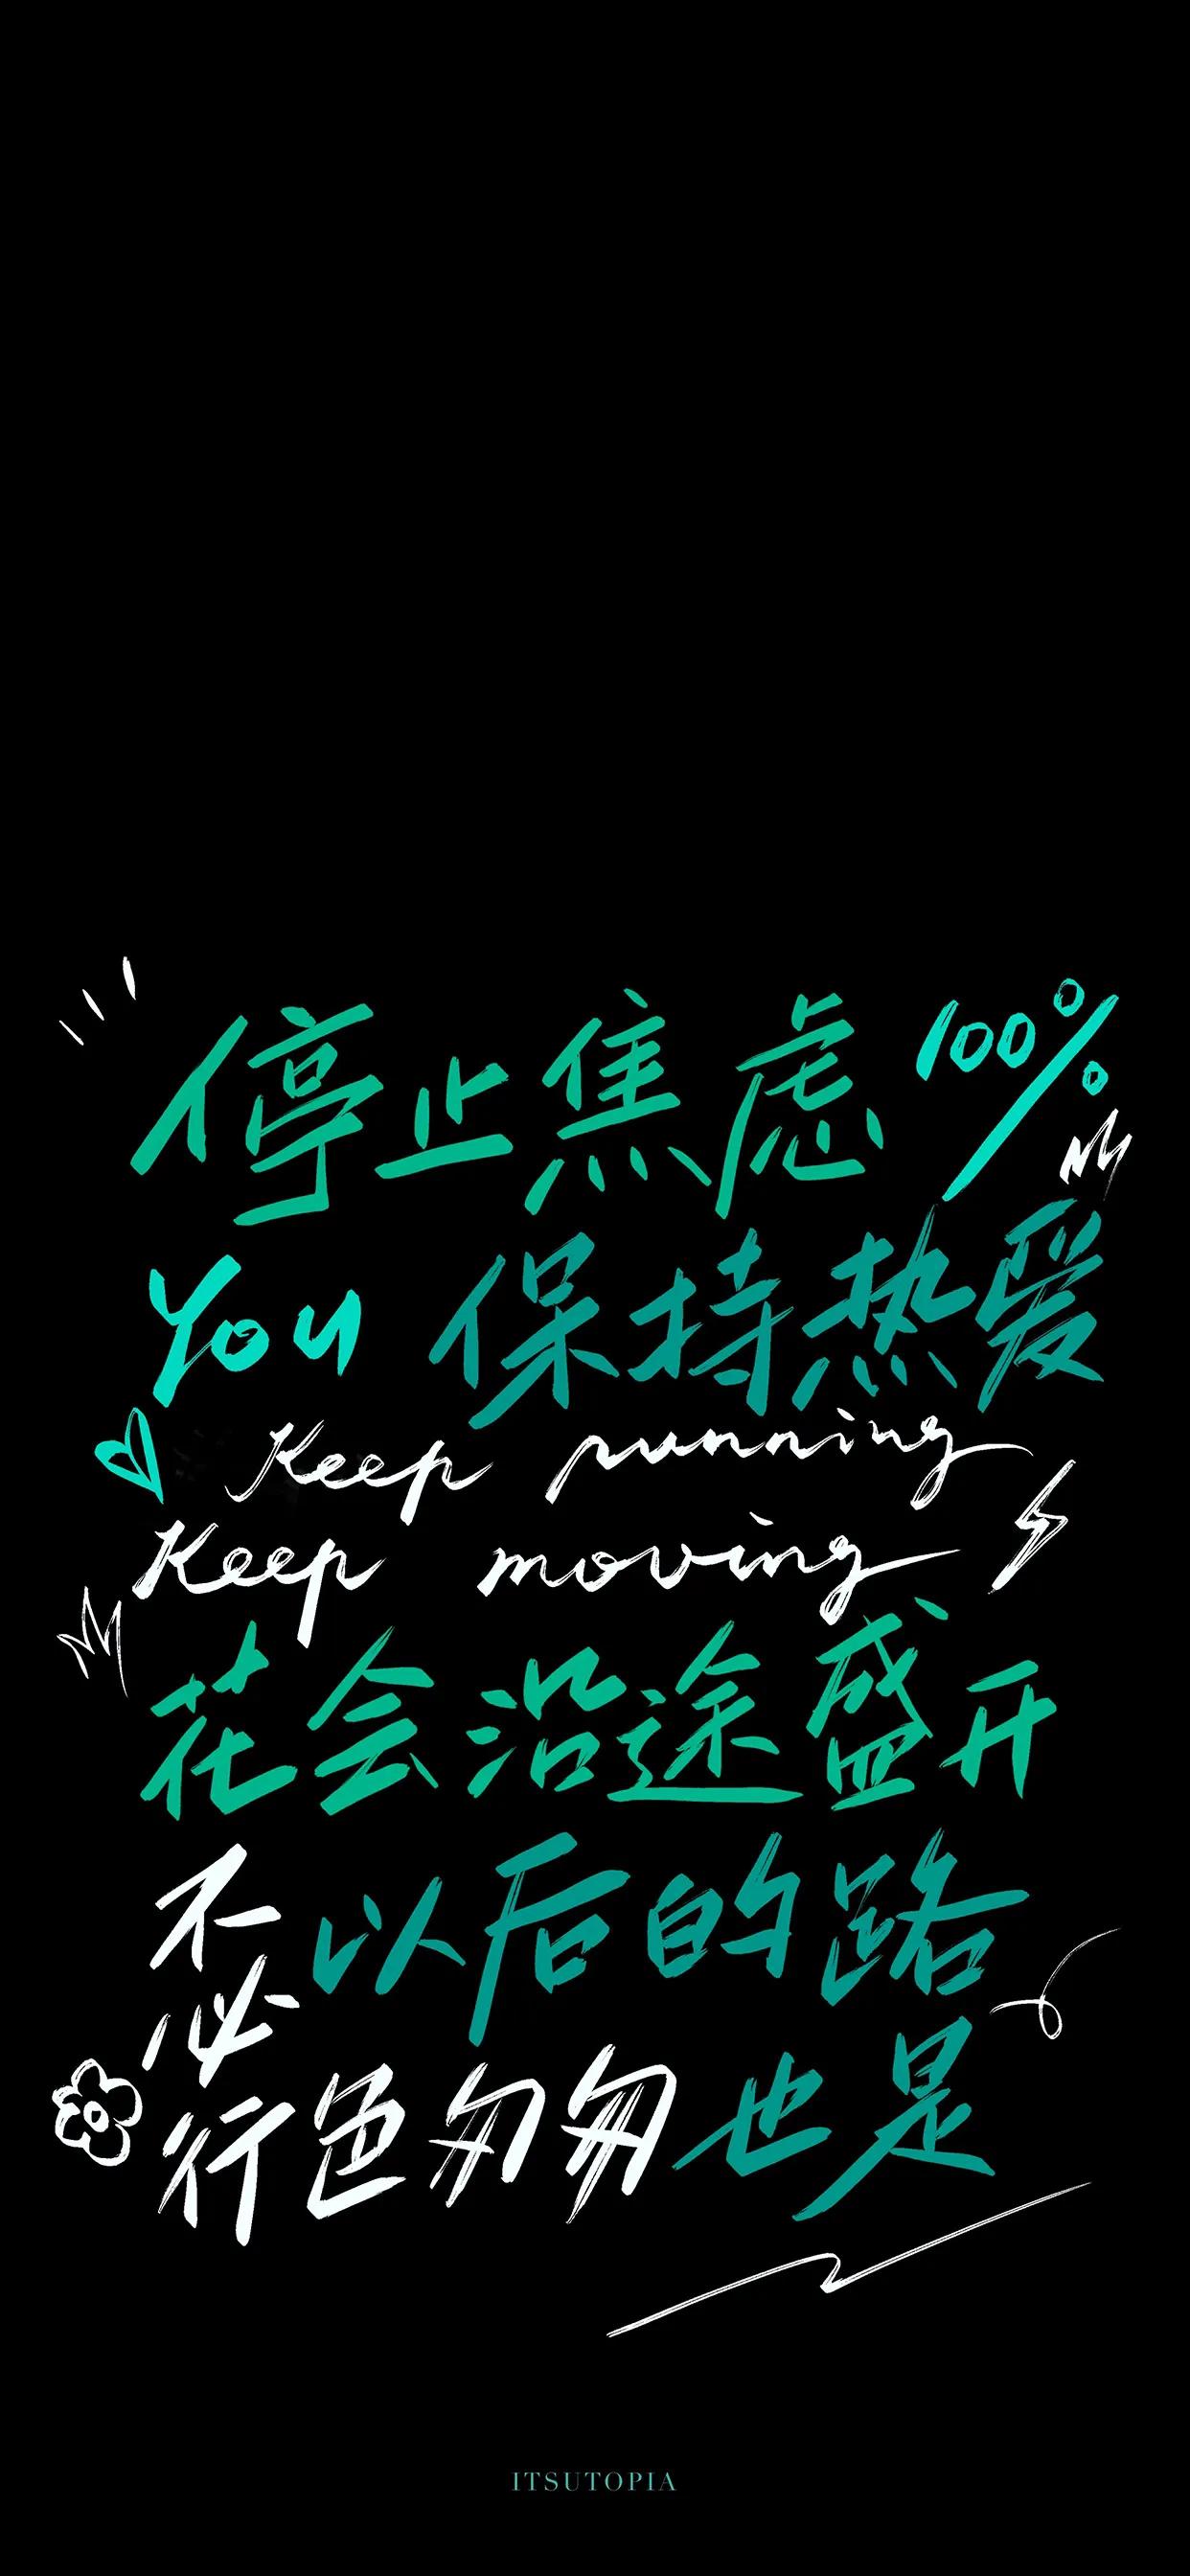 停止焦虑 100%
You 保持热爱
Keep running
Keep moving
花会沿途盛开
不必 以后的路
行色匆匆 也是
ITSUTOPIA